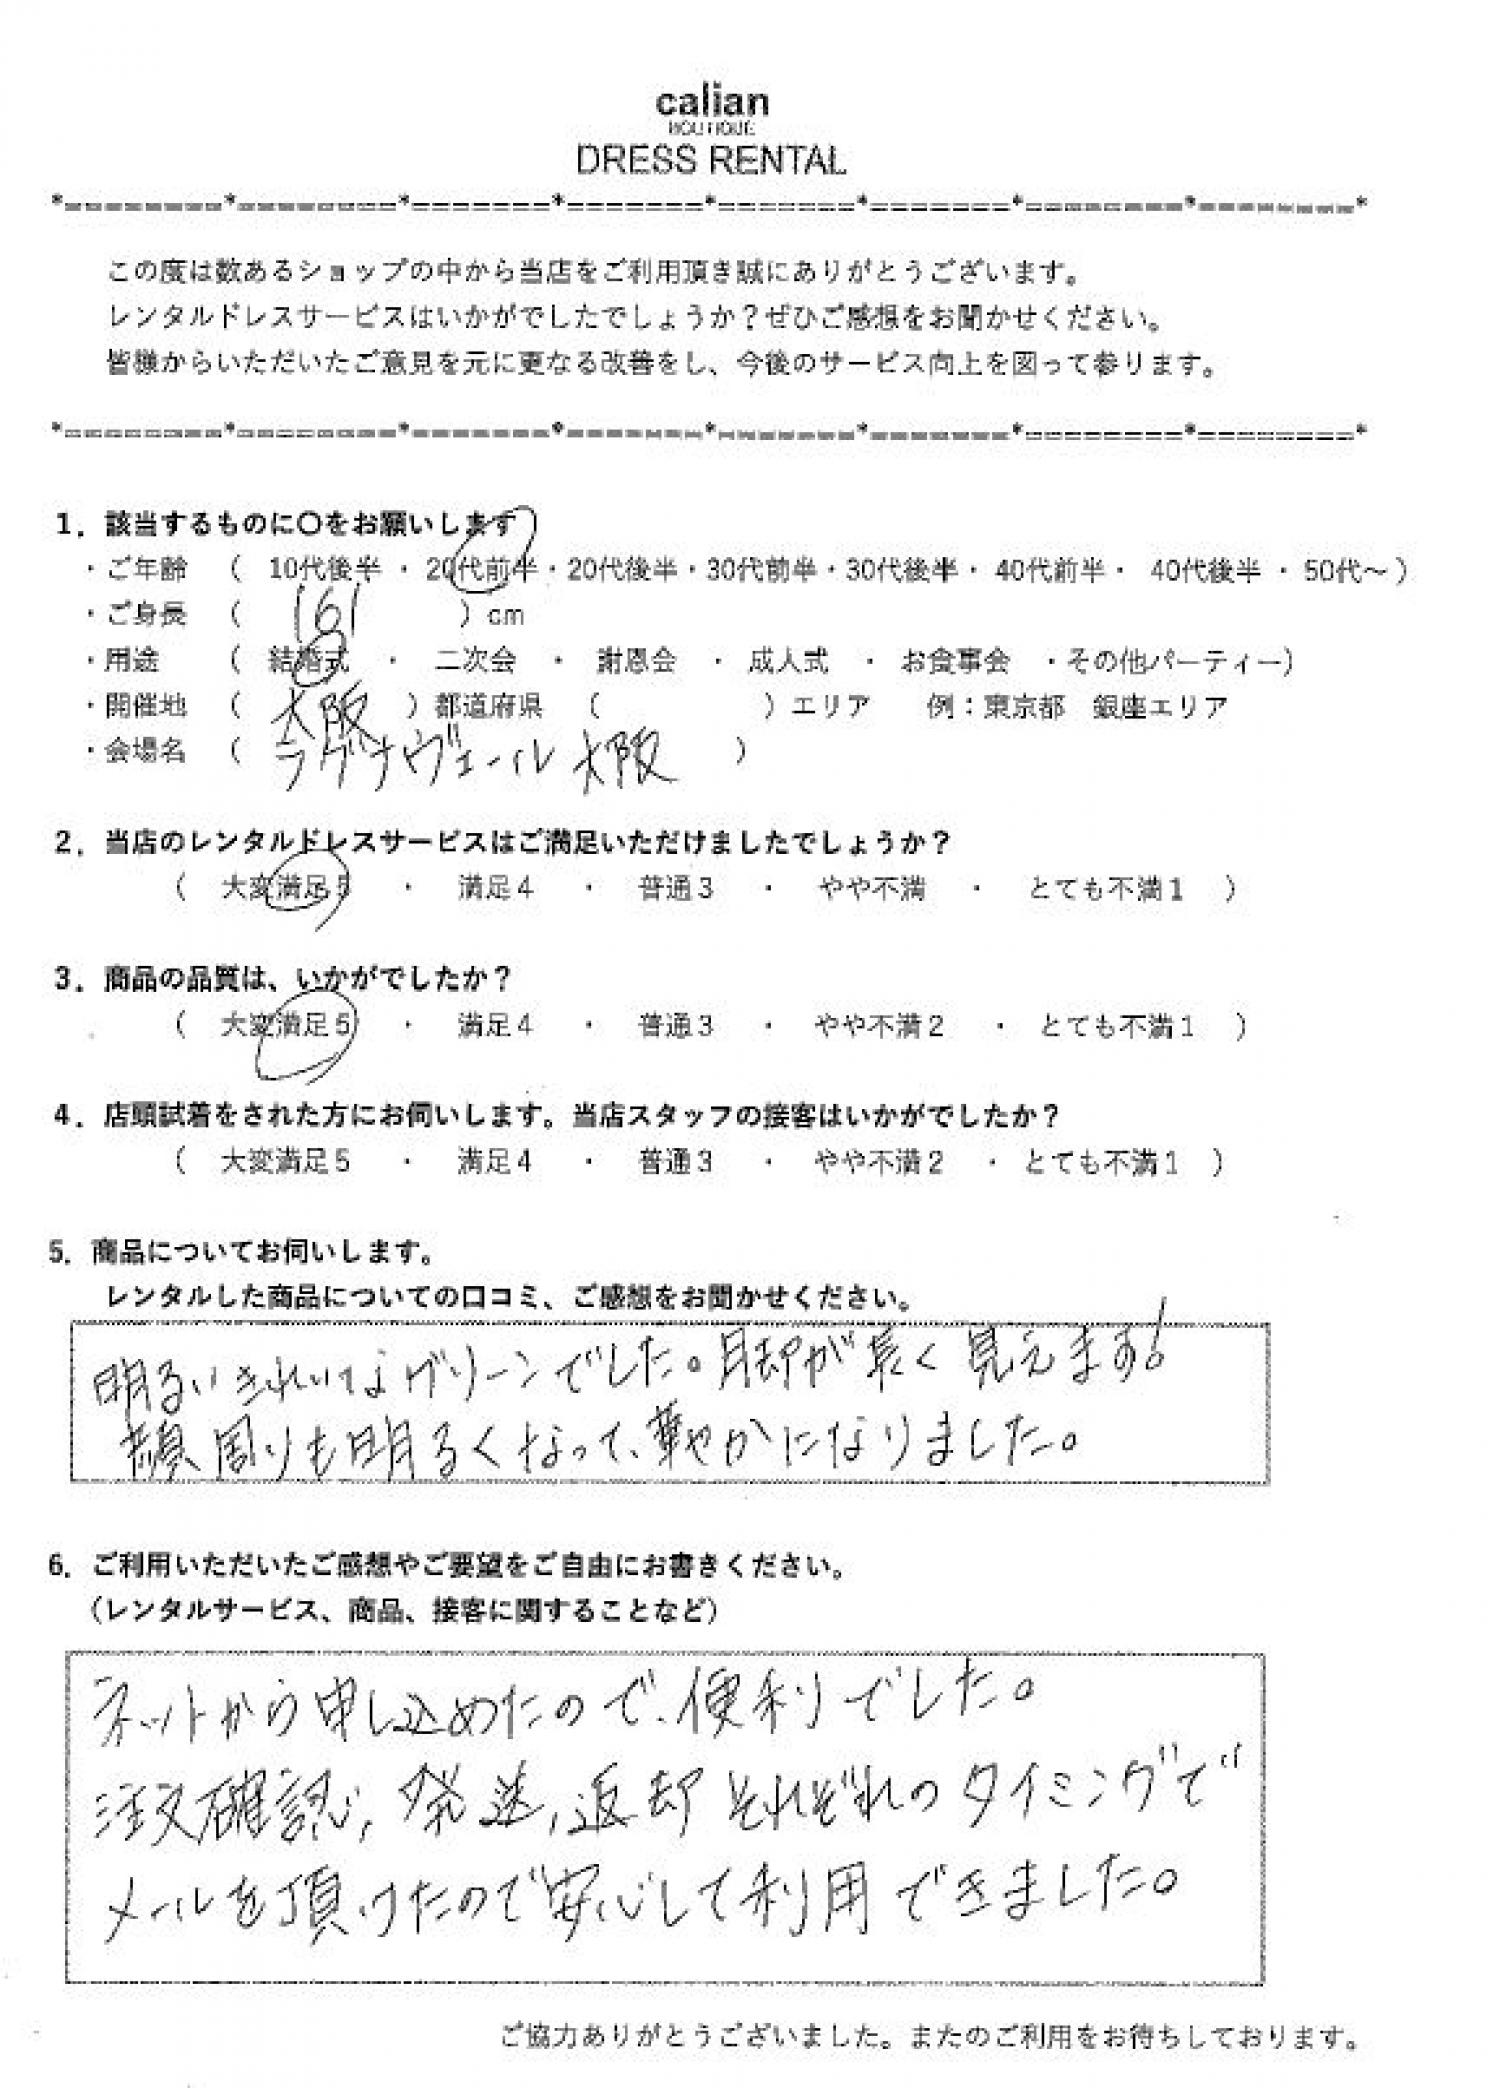 calian
BOUTIQUE
DRESS RENTAL
*========*========*=======*=======*=======*=======*========*========*
この度は数あるショップの中から当店をご利用頂き誠にありがとうございます。
レンタルドレスサービスはいかがでしたでしょうか？ぜひご感想をお聞かせください。
皆様からいただいたご意見を元に更なる改善をし、今後のサービス向上を図って参ります。
*========*========*=======*=======*=======*=======*========*========*
1．該当するものに〇をお願いします
・ご年齢　（　10代後半 ・ 20代前半・20代後半・30代前半・30代後半・ 40代前半・ 40代後半 ・ 50代～）
・ご身長　（　161　）cm
・用途　（　結婚式　・　二次会　・　謝恩会　・　成人式　・　お食事会　・その他パーティー）
・開催地　（　大阪　）都道府県　（　　）エリア　例：東京都　銀座エリア
・会場名　（　ラグナヴェール大阪　）
2．当店のレンタルドレスサービスはご満足いただけましたでしょうか？
（　大変満足５　・　満足４　・　普通３　・　やや不満　・　とても不満１　）
3．商品の品質は、いかがでしたか？
（　大変満足５　・　満足４　・　普通３　・　やや不満２　・　とても不満１　）
4．店頭試着をされた方にお伺いします。当店スタッフの接客はいかがでしたか？
（　大変満足５　・　満足４　・　普通３　・　やや不満２　・　とても不満１　）
5．商品についてお伺いします。
レンタルした商品についての口コミ、ご感想をお聞かせください。
明るいきれいなグリーンでした。脚が長く見えます！
顔周りも明るくなって、華やかになりました。
6．ご利用いただいたご感想やご要望をご自由にお書きください。
（レンタルサービス、商品、接客に関することなど）
ネットから申し込めたので、便利でした。
注文確認，発送，返却それぞれのタイミングで
メールを頂けたので安心して利用できました。
ご協力ありがとうございました。またのご利用をお待ちしております。